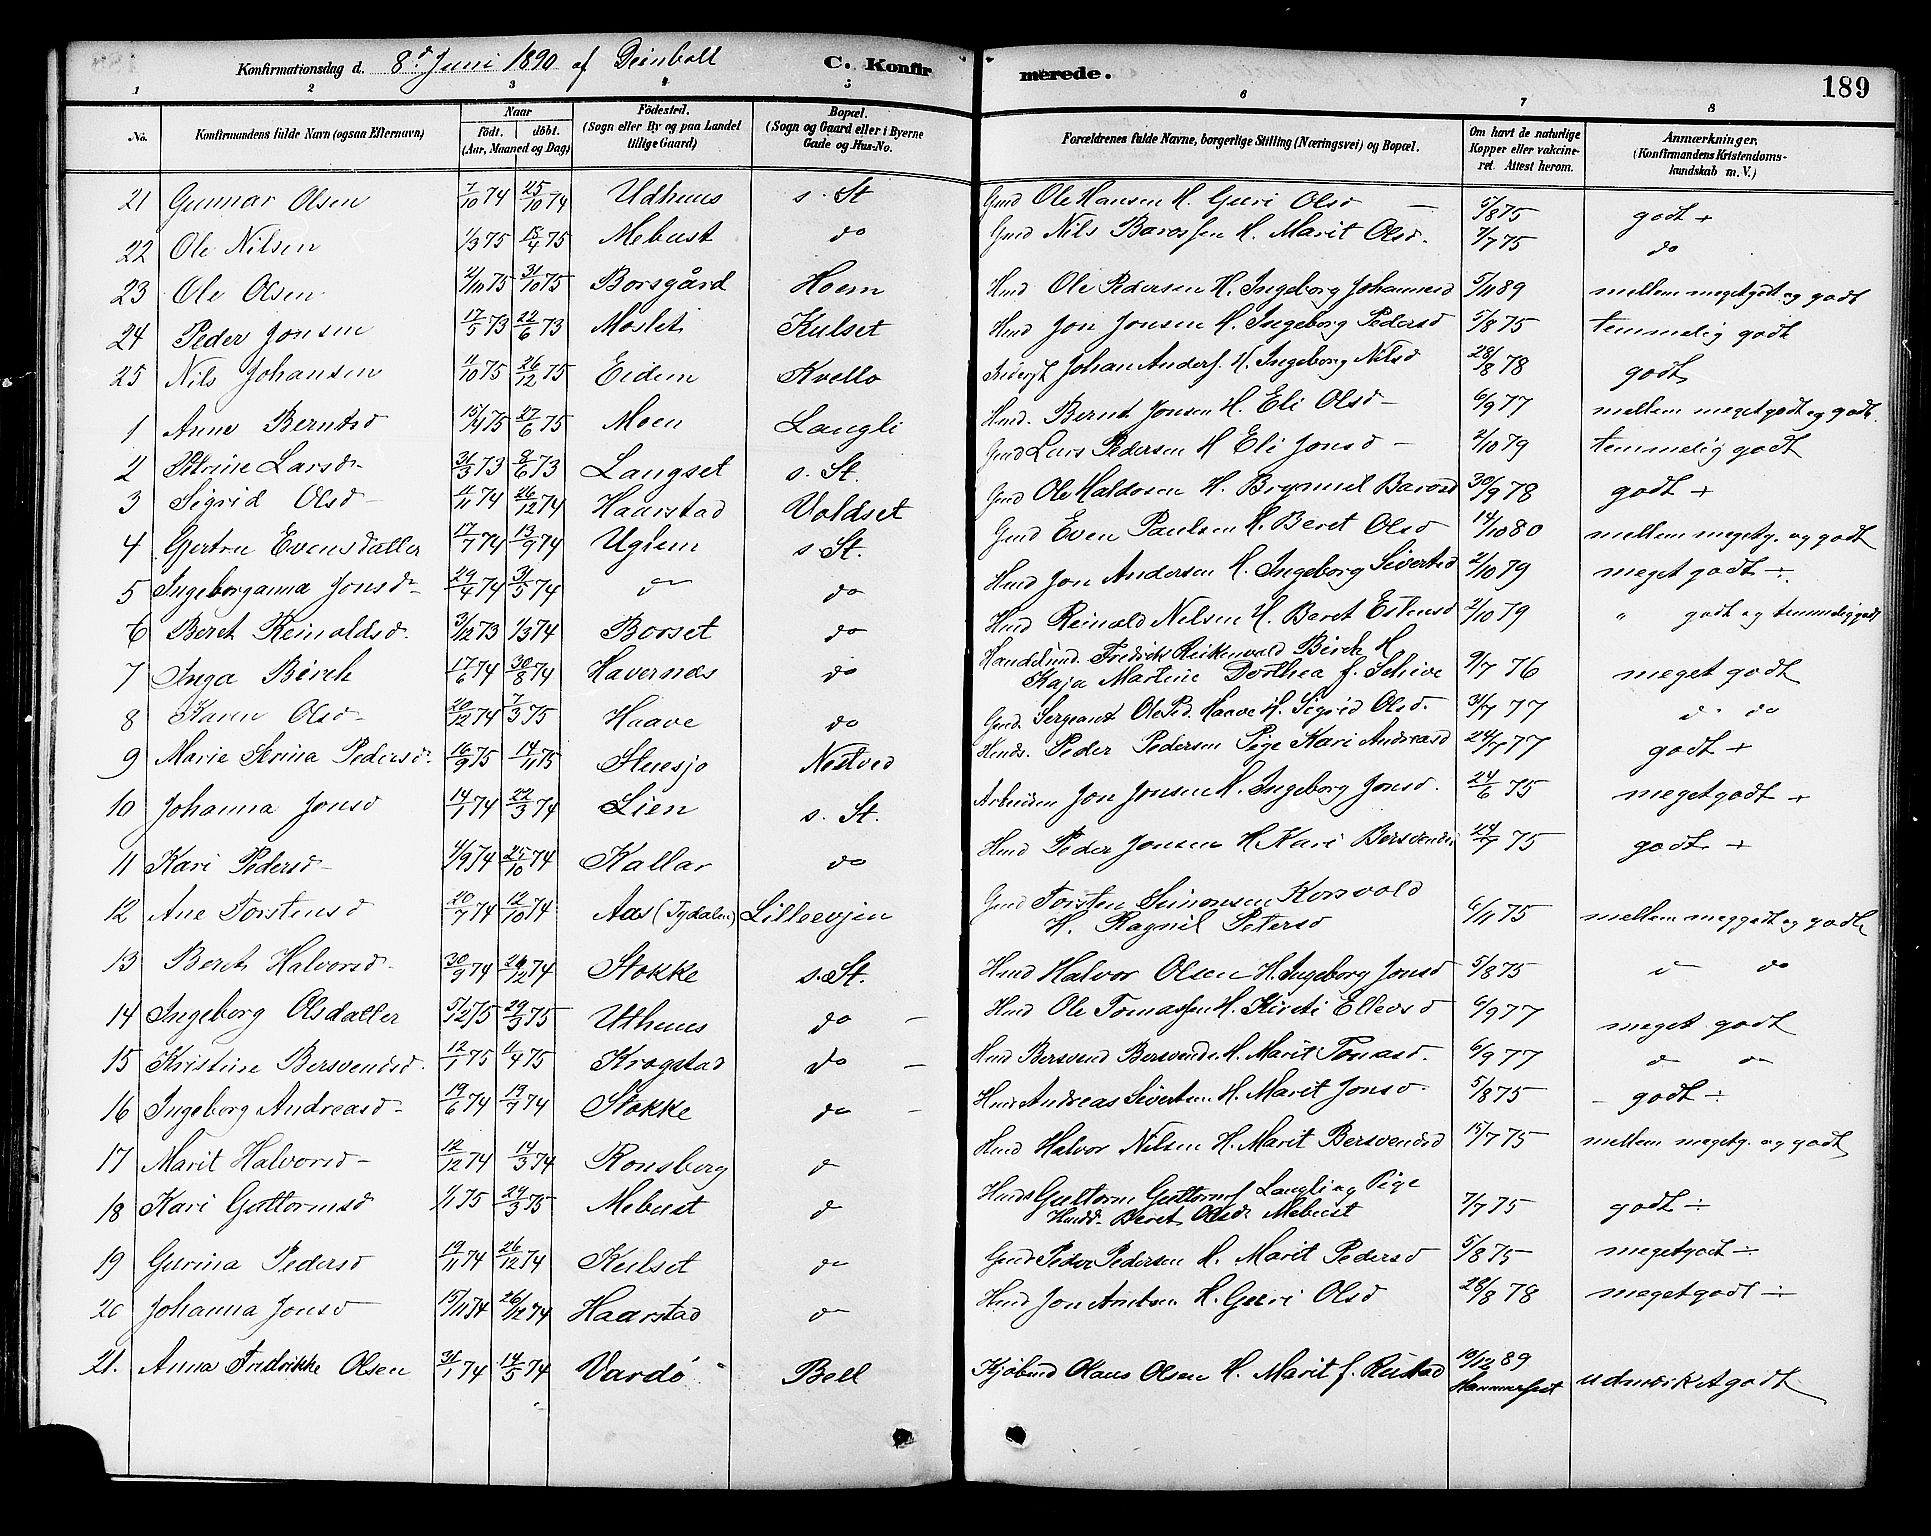 Konfirmationsdag d. 8d Juni 1890 af Deinboll C. Konfirmerede. 189
1 2 3 4 5 6 7 8
No. Konfirmandens fulde Navn (ogsaa Efternavn) Naar födt. döbt. (Aar, Maaned og Dag) Födested. (Sogn eller By og paa Landet tillige Gaard) Bopæl. (Sogn og Gaard eller i Byerne Gade og Hus-No. Forældrenes fulde Navne, borgerlige Stilling (Næringsvei) og Bopæl. Om havt de naturlige Kopper eller vakcineret. Attest herom. Anmærkninger. (Konfirmandens Kristendomskundskab m. V.)
21 Gunnar Olsen 7/10 74 25/10 74 Udhuus s. St Gmd Ole Hansen H. Guri Olsd 5/8 75 godt +
22 Ole Nilsen 1/3 75 18/4 75 Mebust do Gmd Nils Barosen H. Marit Olsd. 7/7 75 do
23 Ole Olsen 2/10 75 31/10 75 Borsgård Hoem Hmd Ole Pedersen H. Ingeborg Johannesd 5/11 89 mellem megetgodt og godt
24 Peder Jonsen 17/5 73 22/6 73 Moslet Kulset Hmd Jon Jonsen H. Ingeborg Pedersd 5/8 75 temmelig godt
25 Nils Johansen 11/10 75 26/12 75 Eidem Kvello Johan Anders. H. Ingeborg Nilsd 28/8 78 godt
1 Anne Berntsd 15/4 75 27/6 75 Moen Langli Hmd. Bernt Jonsen H. Eli Olsd 6/9 77 mellem megetgodt og godt.
2 Larsd 31/3 73 8/6 73 Langset s. St. Gmd Lars Pedersen H Eli Jonsd 2/10 79 temmelig godt
3 Sigrid Olsd 11/11 74 26/12 74 Haarstad Voldset Gmd Ole Haldosen H. Brynnil Barosd 30/9 78 godt +
4 Gjertru Evensdatter 17/7 74 13/9 74 Uglem s St. Gmd Even Paulsen H. Beret Olsd 14/10 80 mellem megetg. og godt
5 Ingeborganna Jonsd 29/4 74 31/5 74 do do Hmd Jon Andersen H. Ingeborg Sivertsd 2/10 79 meget godt ÷
6 Beret Reinoldsd. 3/12 73 1/3 74 Borset do Hmd Reinold Nilsen H. Beret Estensd 2/10 79 " godt og temmeliggodt
7 Inga Birch 17/6 74 30/8 74 Havernæs do Fredrik Birch H Kaja Martine Dorthea f. Schive 9/7 76 meget godt
8 Karen Olsd 20/12 74 7/3 75 Haave do Gmd. Sergeant Ole Ped. Haave H. Sigrid Olsd. 31/7 77 d. do
9 Marie Pedersd. 16/9 75 14/11 75 Stuesjo Nestved Hmds. Peder Pedersen Pige Kari Andreasd 24/7 77 godt +
10 Johanna Jonsd 14/1 74 22/3 74 Lien s. St. Jon Jonsen H. Ingeborg Jonsd. 24/6 75 megetgodt +
11 Kari Pedersd 4/9 74 25/10 74 Kallar do Hmd Peder Jonsen H Kari Bersvendsd 24/7 75 godt +
12 Ane Torstensd 20/7 74 12/10 74 Aas (Tydalen) Lilleevjen Gmd Torsten Simonsen Korsvold H. Ragnil Petersd 6/11 75 mellem meggodt og godt
13 Beret Halvorsd. 30/9 74 26/12 74 Stokke s. St. Hmd Halvor Olsen H. Ingeborg Jonsd 5/8 75 d do
14 Ingeborg Olsdatter 5/2 75 29/3 75 Uthuus do Hmd Ole Tomassen H. Kirsti Ellevsd 6/9 77 meget godt
15 Kristine Bersvendsd. 12/1 75 11/4 75 Krogstad do Hmd Bersvend Bersvends. H. Marit Tomasd. 6/9 77 d do
16 Ingeborg Andreasd 19/6 74 19/7 74 Stokke do Hmd Andreas Sivertsen H. Marit Jonsd. 5/8 75 godt ÷
17 Marit Halvorsd 12/12 74 14/3 74 Ronsberg d Hmd Halvor Nilsen H. Marit Bersvendsd 15/7 75 mellem megetg. og godt
18 Kari Guttormsd 1/1 75 24/3 75 Mebust d Hmds Guttorm Guttorms. Langli og Pige Beret Olsd. Mebust 7/7 75 godt ÷
19 Gurina Pedersd 19/11 74 26/12 74 Kulset do Gmd Peder Pedersen H. Marit Pedersd 5/8 75 megetgodt ÷
20 Johanna Jonsd 15/11 74 26/12 74 Haarstad d Hmd Jon Arntsen H. Guri Olsd 28/8 78 megetgodt ÷
21. Anna Fredrikke Olsen 31/1 74 14/5 74 Vardö Bell Kjöbmd Olaus Olsen H. Marit f. Rustad 19/12 89 Hammerfest udmærket godt